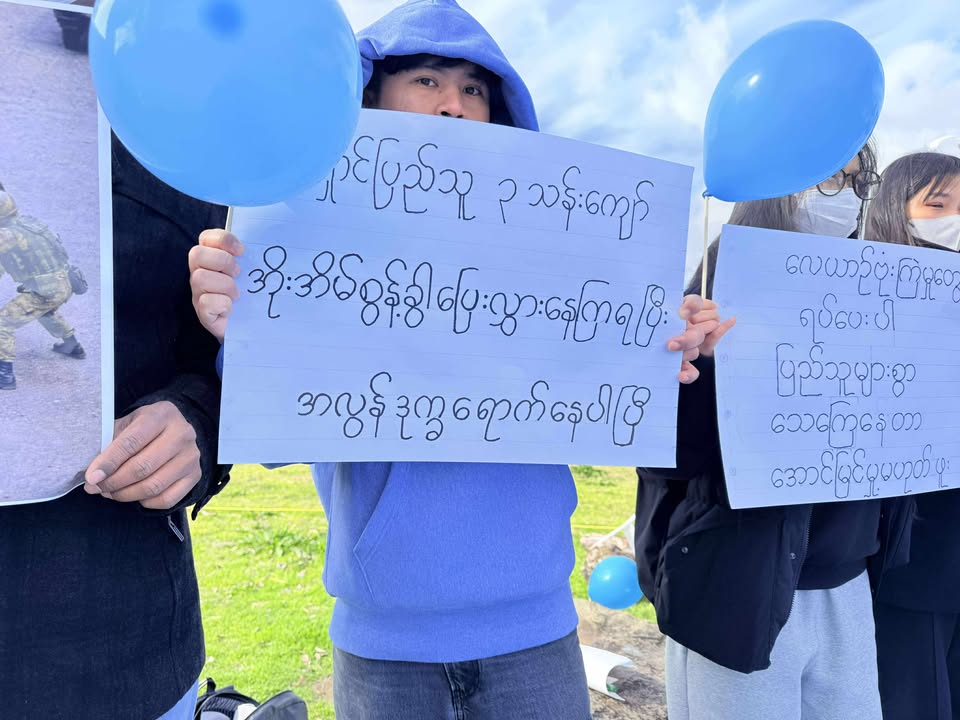 ပြည်သူ ၃ သန်းကျော်
အိုးအိမ်စွန့်ခွါ ပြေးလွှားနေကြရပြီး
အလွန်ဒုက္ခရောက်နေပါပြီ
လေယာဉ်ဗုံးကြဲမှုတွေ
ရပ်ပေးပါ
ပြည်သူများစွာ
သေကြေနေတာ
အောင်မြင်မှုမဟုတ်ဖူး